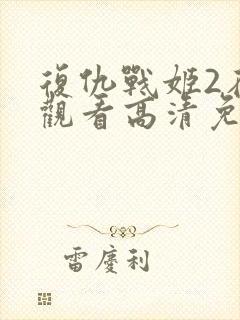 復仇戰姬2
觀看高清免
雷慶利